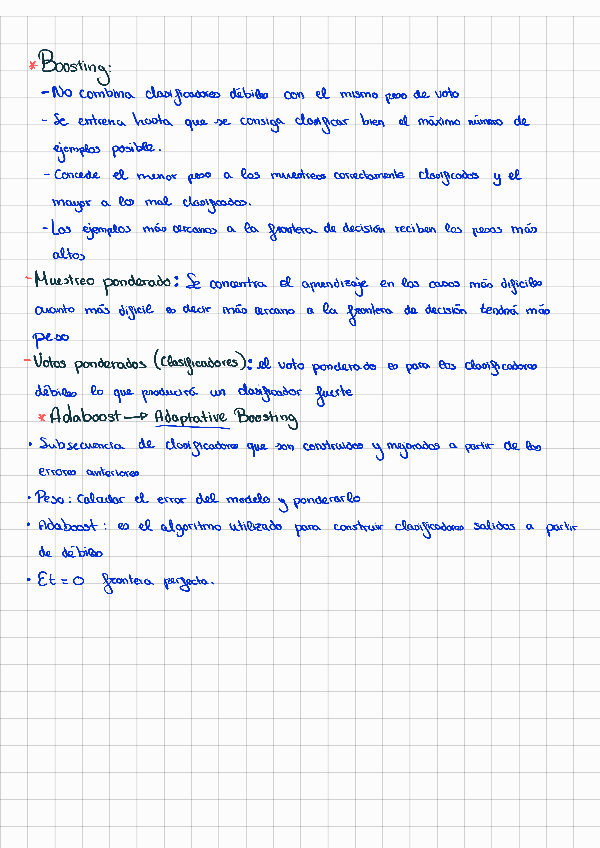 * Boosting:
- No combina clasificadores débiles con el mismo peso de voto
- Se entrena hasta que se consiga clasificar bien el máximo número de
ejemplos posible.
- Concede el menor peso a los muestreos correctamente clasificados y el
mayor a los mal clasificados.
- Los ejemplos más cercanos a la frontera de decisión reciben los pesos más
altos
- Muestreo ponderado: Se concentra el aprendizaje en los casos más difíciles
cuanto más difícil es decir más cercano a la frontera de decisión tendrá más
peso
- Votos ponderados (Clasificadores): el voto ponderado es para los clasificadores
débiles lo que producirá un clasificador fuerte
* Adaboost → Adaptative Boosting
• Subsecuencia de clasificadores que son construidos y mejorados a partir de los
errores anteriores
• Peso: Calcular el error del modelo y ponderarlo
• Adaboost: es el algoritmo utilizado para construir clasificadores salidas a partir
de débiles
• Et = 0 frontera perfecta.